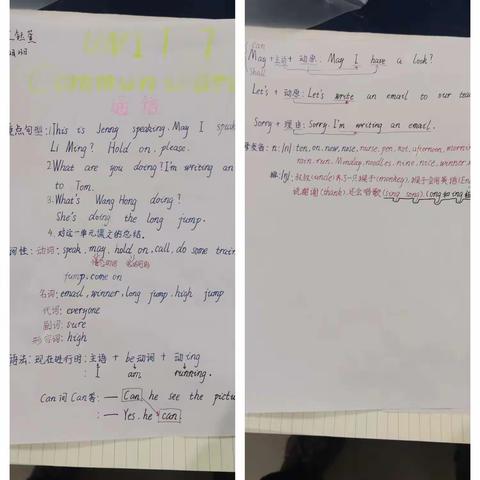 UNIT 7
Communications
重点句型:1.This is Jenny speaking. May I speak
Li Ming? Hold on, please.
2.What are you doing? I'm writing an
to Tom.
3.What's Wang Hong doing?
She's doing the long jump.
4.对这一单元课文的总结。
词性:动词:speak, may, hold on, call, do some train
jump, come on
名词:email, winner, long jump, high jump
代词:everyone
副词:sure
形容词:high
语法:现在进行时:主语 + be动词 + 动ing
: I am running.
Can问Can答:— Can he see the pictu
: — Yes, he can.
Can
May +主语+ 动原: May I have a look?
Shall
Let's + 动原: Let's write an email to our tea
Sorry + 理由: Sorry, I'm writing an email.
n: [n] ten, on, new, nose, nurse, pen, not, afternoon, mornin
rain, run, Monday, noodles, nine, nice, winner
[ŋ]: 叔叔(uncle)养了一只猴子(monkey),猴子会用英语(En
说谢谢(thank),还会唱歌(sing song),